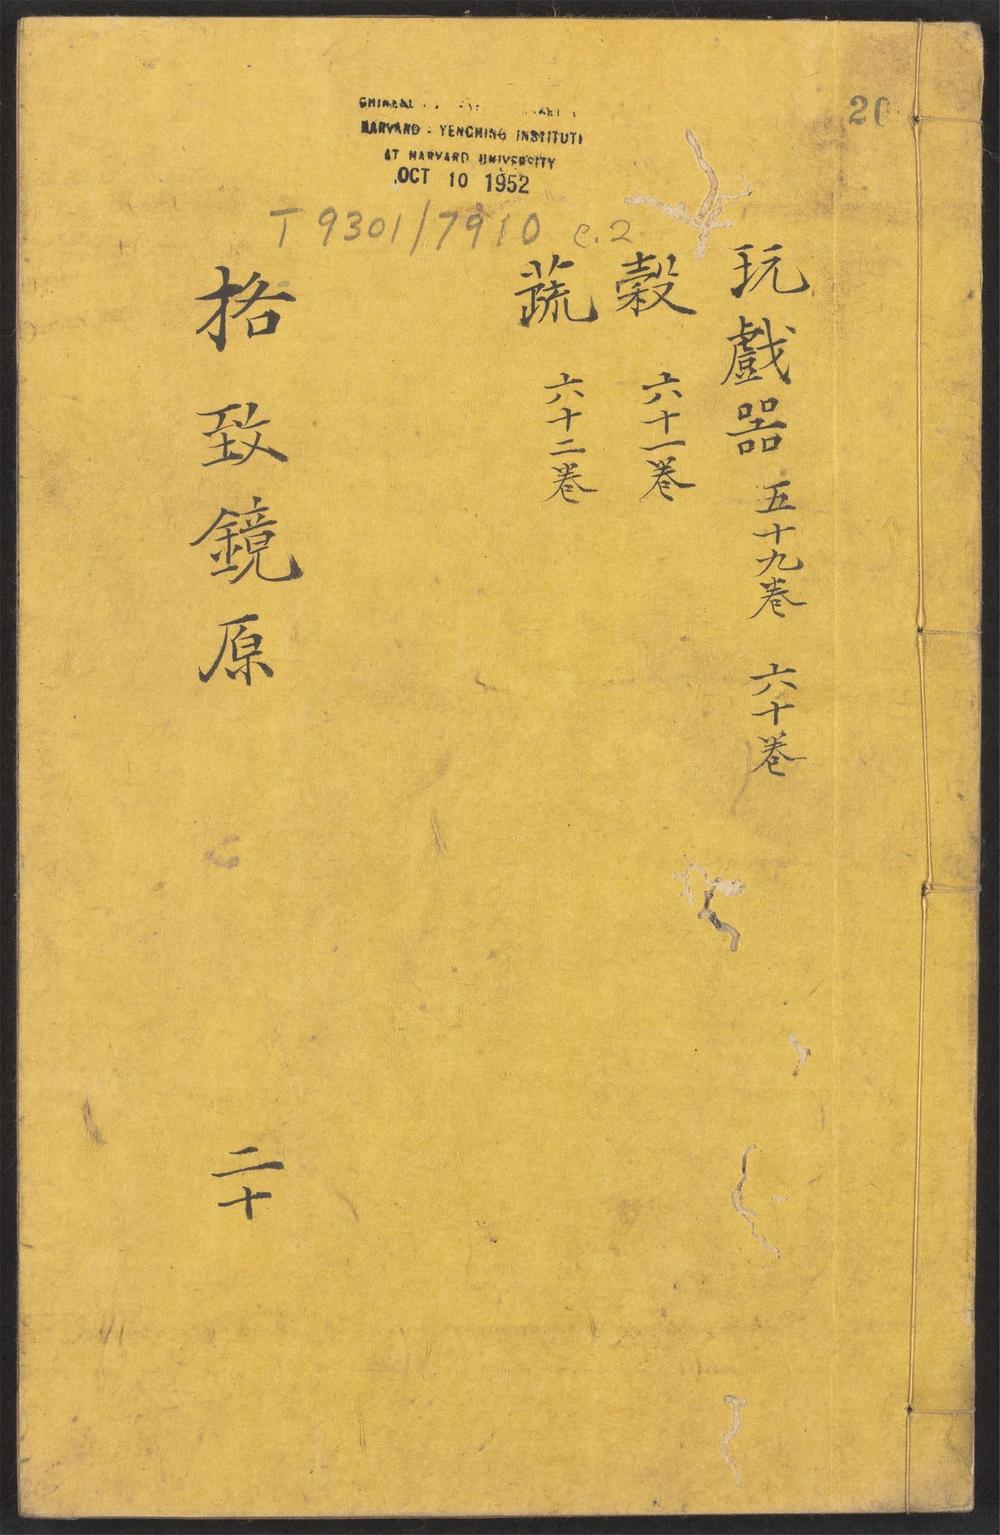 20
HARVARD-YENCHING INSTITUTE
AT HARVARD UNIVERSITY
OCT 10 1952
T 9301/7910 c.2
玩戲器 五十九卷 六十卷
穀 六十一卷
蔬 六十二卷
格致鏡原 二十